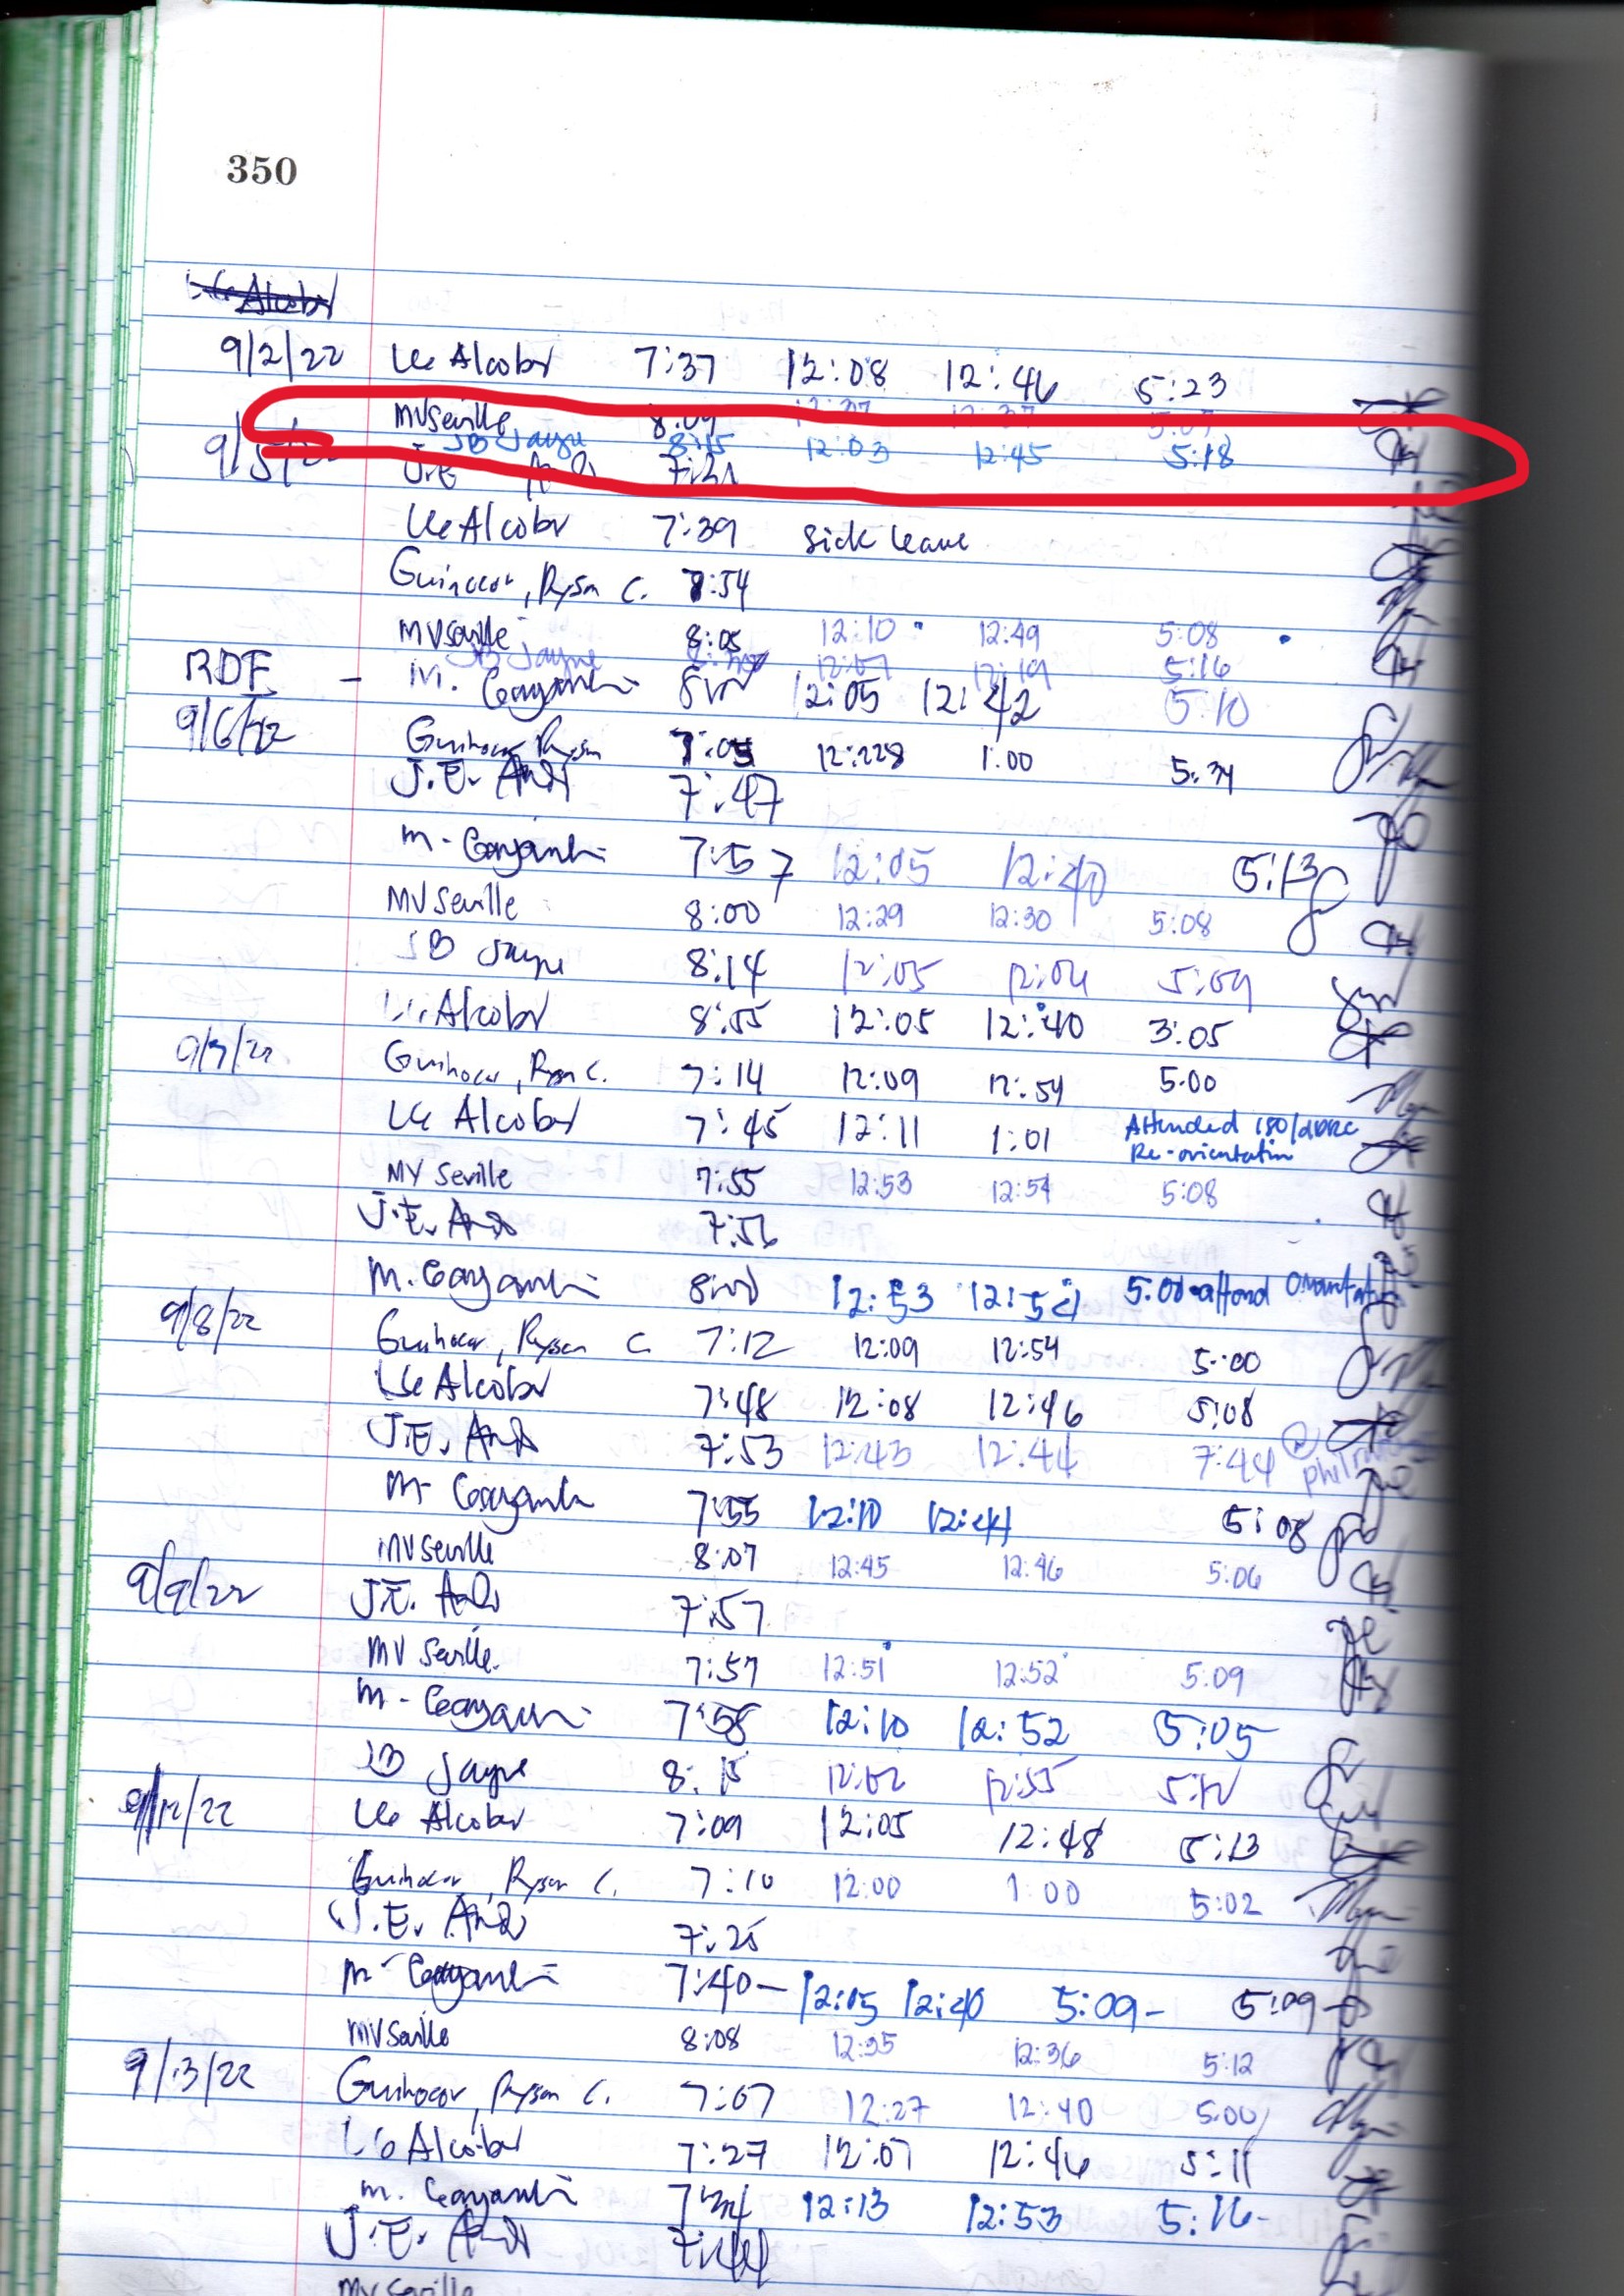 350
9/2/22 LG Alcober 7:37 12:08 12:46 5:23
MVSeville 8:09 12:37 12:37 5:07
JB Jayne 8:15 12:03 12:45 5:18
9/5/22 J.E. 7:21
LG Alcober 7:39 sick leave
Guihocor, Ryson C. 7:54
MVSeville 8:05 12:10 12:49 5:08
JB Jayne 12:07 12:19 5:16
RDE - M. Cayanti 12:05 12:42 5:10
9/6/22 Guihocor, Ryson 7:05 12:228 1:00 5:34
J.E. 7:47
M- Cayanti 7:57 12:05 12:40 5:13
MV Seville 8:00 12:29 12:30 5:08
JB Jayne 8:14 12:05 12:06 5:09
LG Alcober 8:55 12:05 12:40 3:05
9/7/22 Guihocor, Ryson C. 7:14 12:09 12:54 5:00
LG Alcober 7:45 12:11 1:01 Attended ISO/
Re-orientation
MV Seville 7:55 12:53 12:54 5:08
J.E. 7:56
M. Cayanti 12:53 12:54 5:00
9/8/22 Guihocor, Ryson C 7:12 12:09 12:54 5:00
LG Alcober 7:48 12:08 12:46 5:08
J.E. 7:53 12:43 12:44 7:44 @
M- Cayanti 7:55 12:10 12:41 5:08
MVSeville 8:07 12:45 12:46 5:06
9/9/22 J.E. 7:57
MV Seville 7:57 12:51 12:52 5:09
M- Cayanti 7:58 12:10 12:52 5:05
JB Jayne 8:15 12:02 12:55 5:12
9/12/22 LG Alcober 7:09 12:05 12:48 5:13
Guihocor, Ryson C. 7:10 12:00 1:00 5:02
J.E. 7:25
M- Cayanti 7:40- 12:05 12:40 5:09- 5:09
MVSeville 8:08 12:35 12:36 5:12
9/13/22 Guihocor, Ryson C. 7:07 12:27 12:40 5:00
LG Alcober 7:27 12:07 12:46 5:11
M. Cayanti 12:13 12:53 5:16-
J.E. 7:44
MV Seville